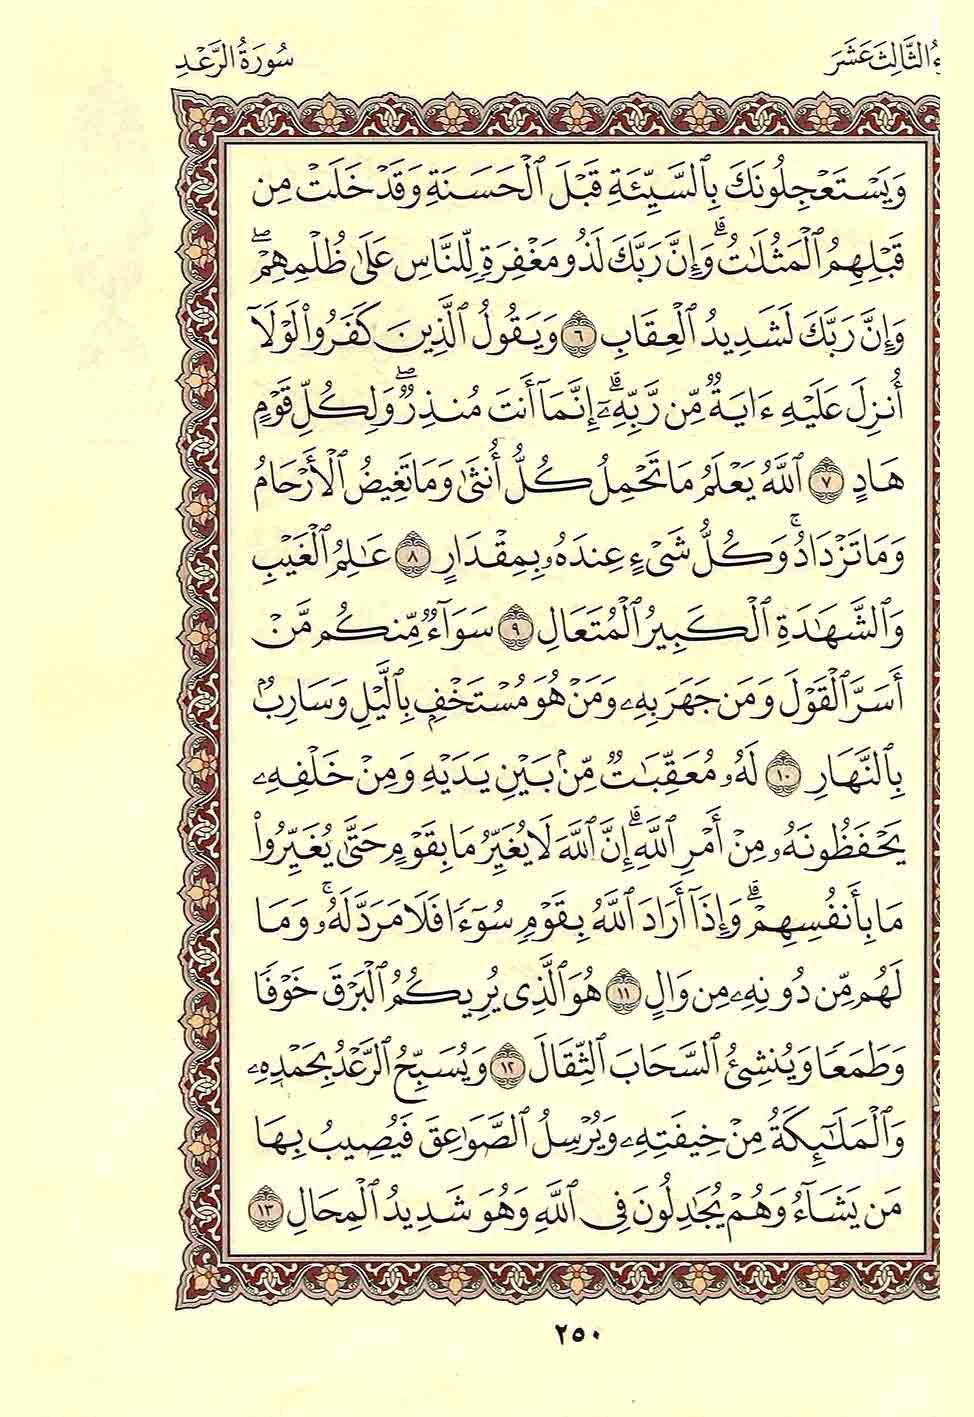 ءُ الثَّالِثَ عَشَرَ
سُورَةُ الرَّعْدِ
وَيَسْتَعْجِلُونَكَ بِٱلسَّيِّئَةِ قَبْلَ ٱلْحَسَنَةِ وَقَدْ خَلَتْ مِن
قَبْلِهِمُ ٱلْمَثُلَٰتُۗ وَإِنَّ رَبَّكَ لَذُو مَغْفِرَةٍ لِّلنَّاسِ عَلَىٰ ظُلْمِهِمْۖ
وَإِنَّ رَبَّكَ لَشَدِيدُ ٱلْعِقَابِ ٦ وَيَقُولُ ٱلَّذِينَ كَفَرُوا۟ لَوْلَآ
أُنزِلَ عَلَيْهِ ءَايَةٌ مِّن رَّبِّهِۦٓۗ إِنَّمَآ أَنتَ مُنذِرٌۖ وَلِكُلِّ قَوْمٍ
هَادٍ ٧ ٱللَّهُ يَعْلَمُ مَا تَحْمِلُ كُلُّ أُنثَىٰ وَمَا تَغِيضُ ٱلْأَرْحَامُ
وَمَا تَزْدَادُۚ وَكُلُّ شَىْءٍ عِندَهُۥ بِمِقْدَارٍ ٨ عَٰلِمُ ٱلْغَيْبِ
وَٱلشَّهَٰدَةِ ٱلْكَبِيرُ ٱلْمُتَعَالِ ٩ سَوَآءٌ مِّنكُم مَّنْ
أَسَرَّ ٱلْقَوْلَ وَمَن جَهَرَ بِهِۦ وَمَنْ هُوَ مُسْتَخْفٍۭ بِٱلَّيْلِ وَسَارِبٌۢ
بِٱلنَّهَارِ ١٠ لَهُۥ مُعَقِّبَٰتٌ مِّنۢ بَيْنِ يَدَيْهِ وَمِنْ خَلْفِهِۦ
يَحْفَظُونَهُۥ مِنْ أَمْرِ ٱللَّهِۗ إِنَّ ٱللَّهَ لَا يُغَيِّرُ مَا بِقَوْمٍ حَتَّىٰ يُغَيِّرُوا۟
مَا بِأَنفُسِهِمْۗ وَإِذَآ أَرَادَ ٱللَّهُ بِقَوْمٍ سُوٓءًا فَلَا مَرَدَّ لَهُۥۚ وَمَا
لَهُم مِّن دُونِهِۦ مِن وَالٍ ١١ هُوَ ٱلَّذِى يُرِيكُمُ ٱلْبَرْقَ خَوْفًا
وَطَمَعًا وَيُنشِئُ ٱلسَّحَابَ ٱلثِّقَالَ ١٢ وَيُسَبِّحُ ٱلرَّعْدُ بِحَمْدِهِۦ
وَٱلْمَلَٰٓئِكَةُ مِنْ خِيفَتِهِۦ وَيُرْسِلُ ٱلصَّوَٰعِقَ فَيُصِيبُ بِهَا
مَن يَشَآءُ وَهُمْ يُجَٰدِلُونَ فِى ٱللَّهِ وَهُوَ شَدِيدُ ٱلْمِحَالِ ١٣
٢٥٠